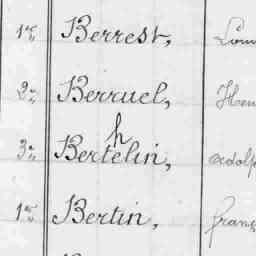 1re Berrest,
2e Berruel, Hen
3e Berthelin, Adolp
1re Bertin, franç